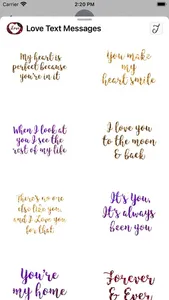 2:20 PM
Love Text Messages
My heart is
perfect because
you're in it
You make
my
heart smile
When I look
at you I see the
rest of my life
I love you
to the moon
& back
There's no one
else like you,
and I Love You
for that.
It's You,
It's always
been you
You're
my home
Forever
& Ever